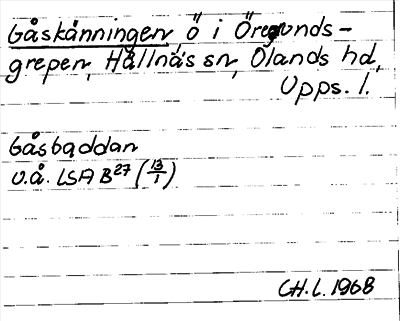 Gåskänningen, ö i Öregrunds-
grepen, Hållnäs sn, Olands hd,
Upps. l.
Gåsbaddan
u.å. LSA B27 (13/1)
CH.L. 1968